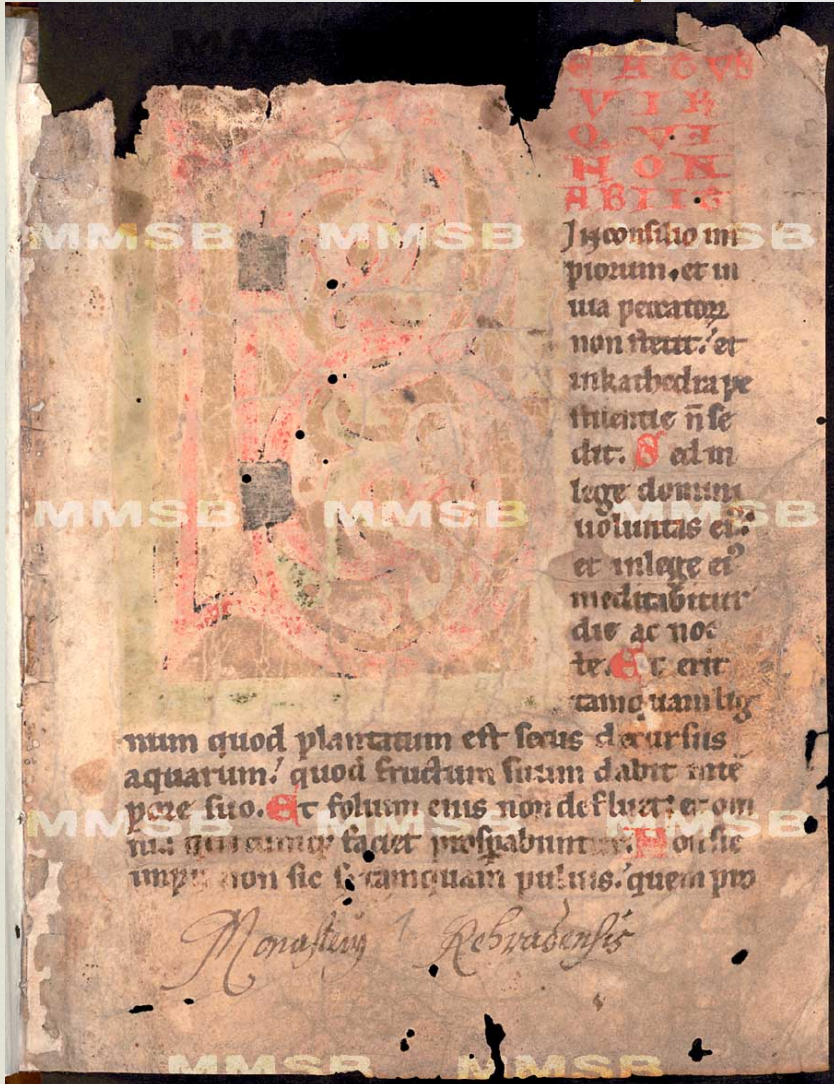 B
EATVS
VIR
QVI
NON
ABIIT
In consilio im
piorum. et in
uia peccatoꝝ
non stetit. et
in kathedra pe
stilentie n̄ se
dit. Sed in
lege domini
uoluntas eiꝰ
et in lege eiꝰ
meditabitur
die ac noc
te. Et erit
tamquam lig
num quod plantatum est secus decursus
aquarum. quod fructum suum dabit in tē
pore suo. Et folium eius non defluet. et om
nia quecumqꝫ faciet prosꝑabuntur. Non sic
impii non sic s; tamquam puluis. quem pro
Monasterij 1 Rehradensis
MMSB
MMSB
MMSB
MMSB
MMSB
MMSB
MMSB
MMSB
MMSB
MMSB
MMSB
MMSB
MMSB